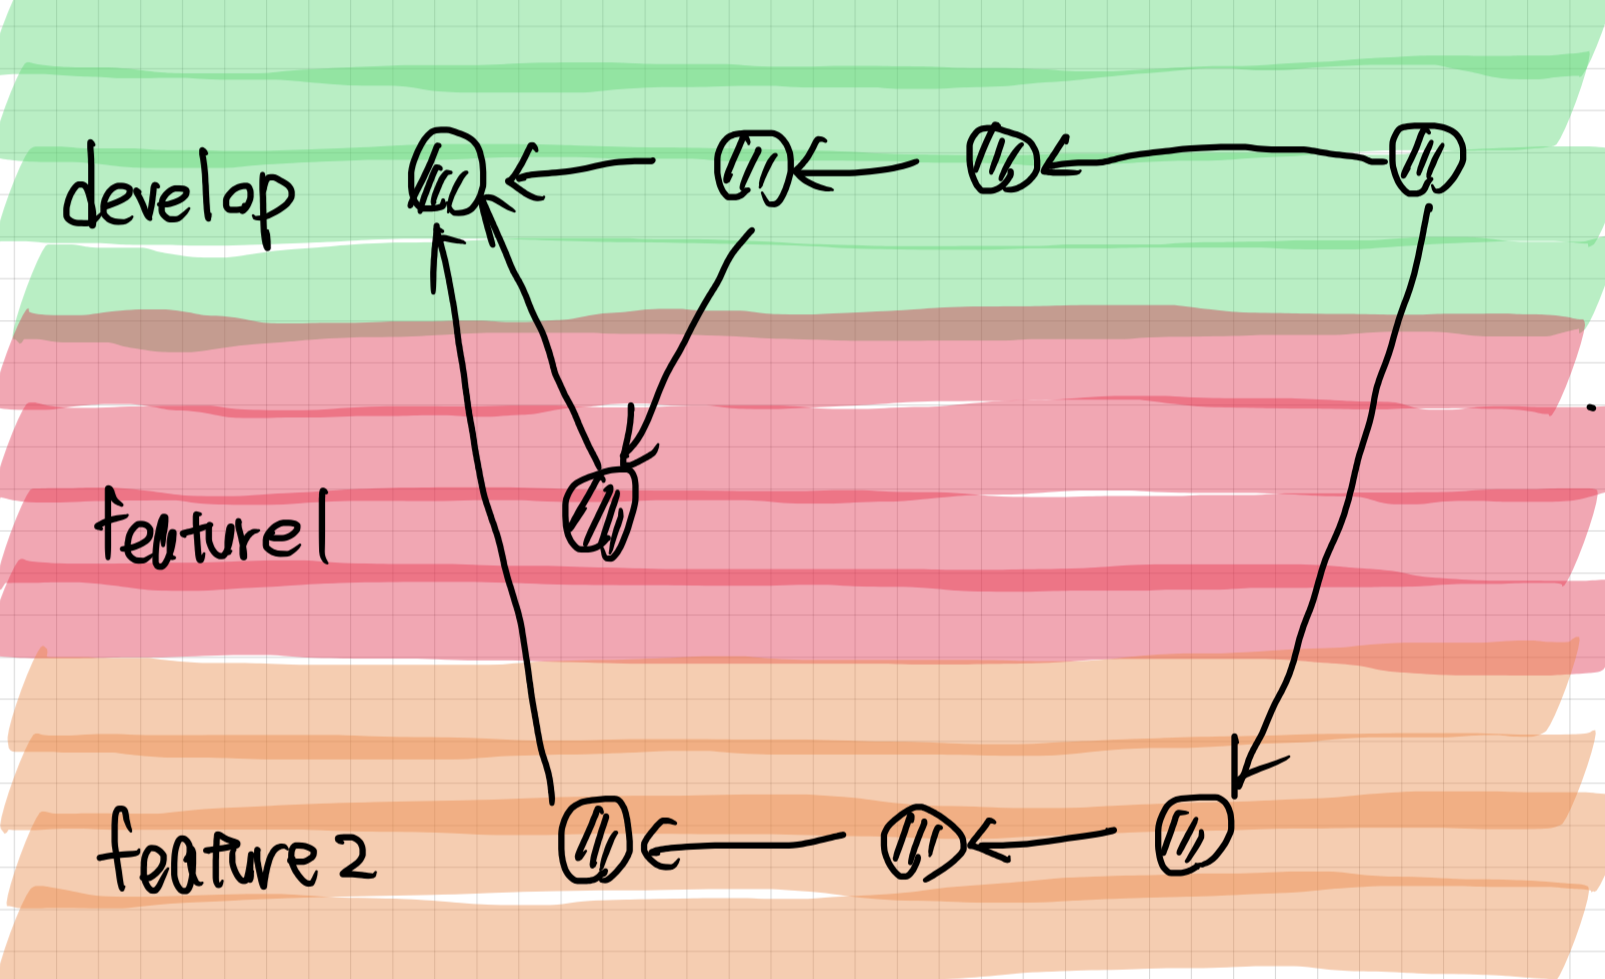 develop
feature1
feature2